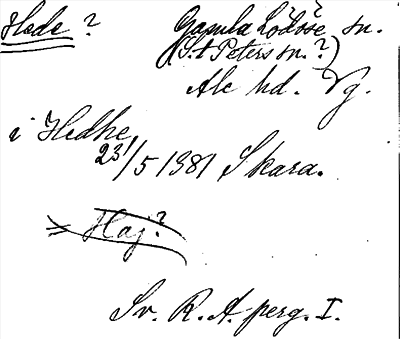 Hede ?
Gamla Lödöse sn.
(S:t Peters sn. ?)
Ale hd. Vg.
i Hedhe
23/5 1381 Skara.
= Haj ?
Sv. R. A. perg. I.